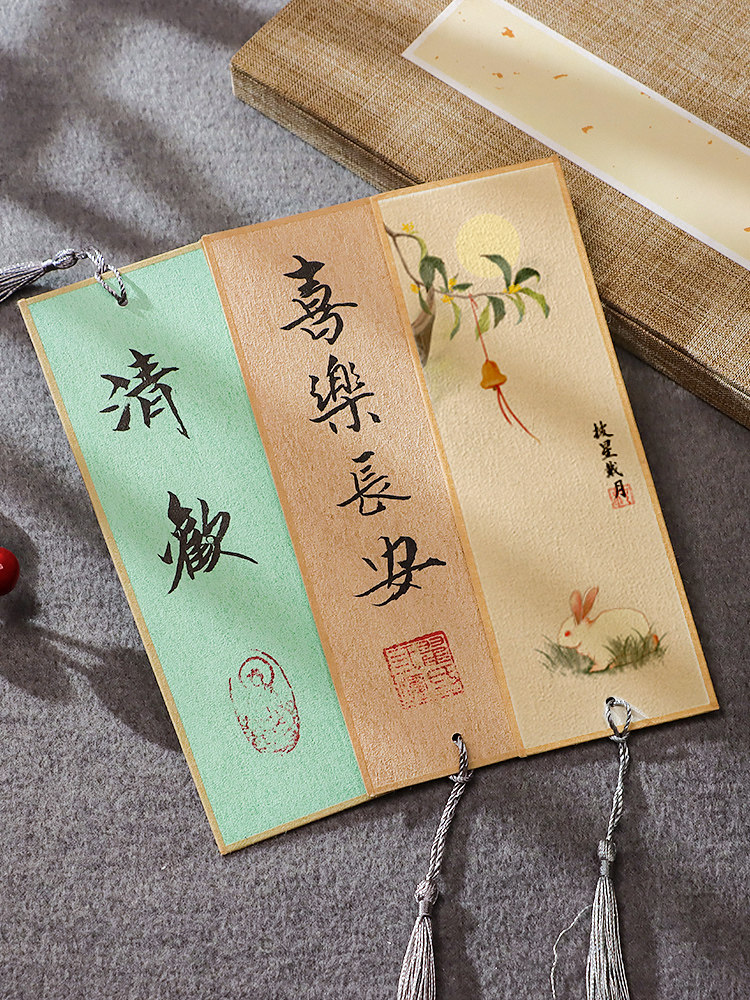 清歡
喜樂長安
披星戴月